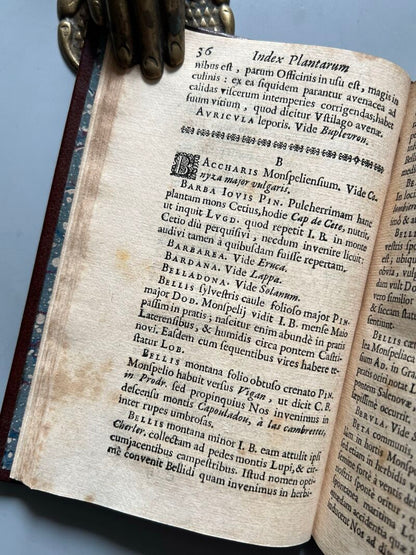 36 Index Plantarum
nibus est, parum Officinis in usu est, magis in
culinis: ex ea siquidem parantur avenacea ad
calidas viscerum intemperies corrigendas; habet
suum vitium, quod dicitur Ustilago avenæ.
AURICULA leporis. Vide Buplevron.
B
BACCHARIS Monspeliensium. Vide Co-
nyza major vulgaris.
BARBA IOVIS PIN. Pulcherrimam hanc
plantam mons Cetius, hodie Cap de Cete, nutrit,
ut inquit LUGD. quod repetit I. B. in monte
Cetio diu perquisivi, necdum invenire licuit:
audivi tamen à quibusdam fuisse repertam.
BARBAREA. Vide Eruca.
BARDANA. Vide Lappa.
BELLADONA. Vide Solanum.
BELLIS sylvestris caule folioso major PIN.
major DOD. Monspelij vidit I. B. mense Maio
passim in pratis; nascitur enim abundè in pratis
Laterensibus, & humidis circa pontem Castri-
novi. Easdem cum sequentibus vires habere te-
statur LOB.
BELLIS montana folio obtuso crenato PIN.
Monspelio habuit versus Vigan, ut dicit C. B.
in Prodr. sed propinquius Nos invenimus in
descensu montis Capouladou, à las cambrettes,
inter rupes umbrosas.
BELLIS montana minor I. B. eam attulit ipsi
Cherler, collectam ad pedes montis Lupi, & cir-
cumjacentibus campestribus. Istud nomen opti-
mè convenit Bellidi quam invenimus in herbi-